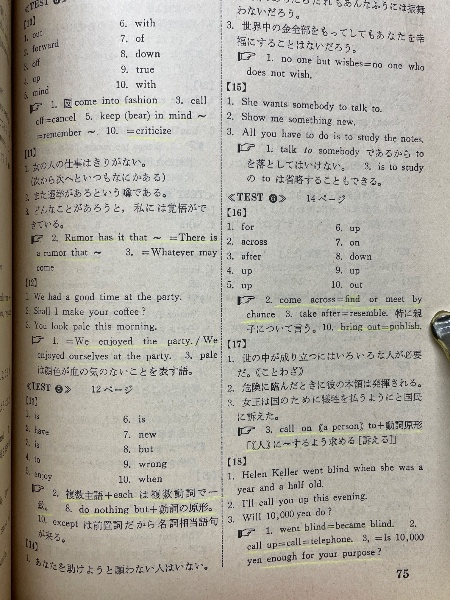 ≪TEST
【10】
1. out
2. forward
3. off
4. up
5. mind
6. with
7. of
8. down
9. true
10. with
☞ 1. 図 come into fashion 3. call
off=cancel 5. keep (bear) in mind ~
=remember ~. 10. =criticize
【11】
1. 女の人の仕事はきりがない。
(次から次へといつもなにかある)
2. また選挙があるという噂である。
3. どんなことがあろうと，私には覚悟がで
きている。
☞ 2. Rumor has it that ~ =There is
a rumor that ~ 3. =Whatever may
come
【12】
1. We had a good time at the party.
2. Shall I make your coffee?
3. You look pale this morning.
☞ 1. =We enjoyed the party./We
enjoyed ourselves at the party. 3. pale
は顔色が血の気のないことを表す語。
≪TEST ❺≫ 12ページ
【13】
1. is
2. have
3. is
4. to
5. enjoy
6. is
7. new
8. but
9. wrong
10. when
☞ 2. 複数主語+each は複数動詞で一
致。 8. do nothing but+動詞の原形。
10. except は前置詞だから名詞相当語句
が来る。
【14】
1. あなたを助けようと願わない人はいない。
わないだろう。
3. 世界中の金全部をもってしてもあなたを幸
福にすることはないだろう。
☞ 1. no one but wishes=no one who
does not wish.
【15】
1. She wants somebody to talk to.
2. Show me something new.
3. All you have to do is to study the notes.
☞ 1. talk to somebody であるから to
を落としてはいけない。 3. is to study
の to は省略することもできる。
≪TEST ❻≫ 14ページ
【16】
1. for
2. across
3. after
4. up
5. up
6. up
7. on
8. down
9. up
10. out
☞ 2. come across=find or meet by
chance 3. take after=resemble. 特に親
子について言う。 10. bring out=publish.
【17】
1. 世の中が成り立つにはいろいろな人が必要
だ。《ことわざ》
2. 危険に臨んだときに彼の本領は発揮される。
3. 女王は国のために犠牲を払うようにと国民
に訴えた。
☞ 3. call on 《a person》 to+動詞原形
「《人》に~するよう求める［訴える］」
【18】
1. Helen Keller went blind when she was a
year and a half old.
2. I'll call you up this evening.
3. Will 10,000 yen do?
☞ 1. went blind=became blind. 2.
call up=call=telephone. 3. =Is 10,000
yen enough for your purpose?
75